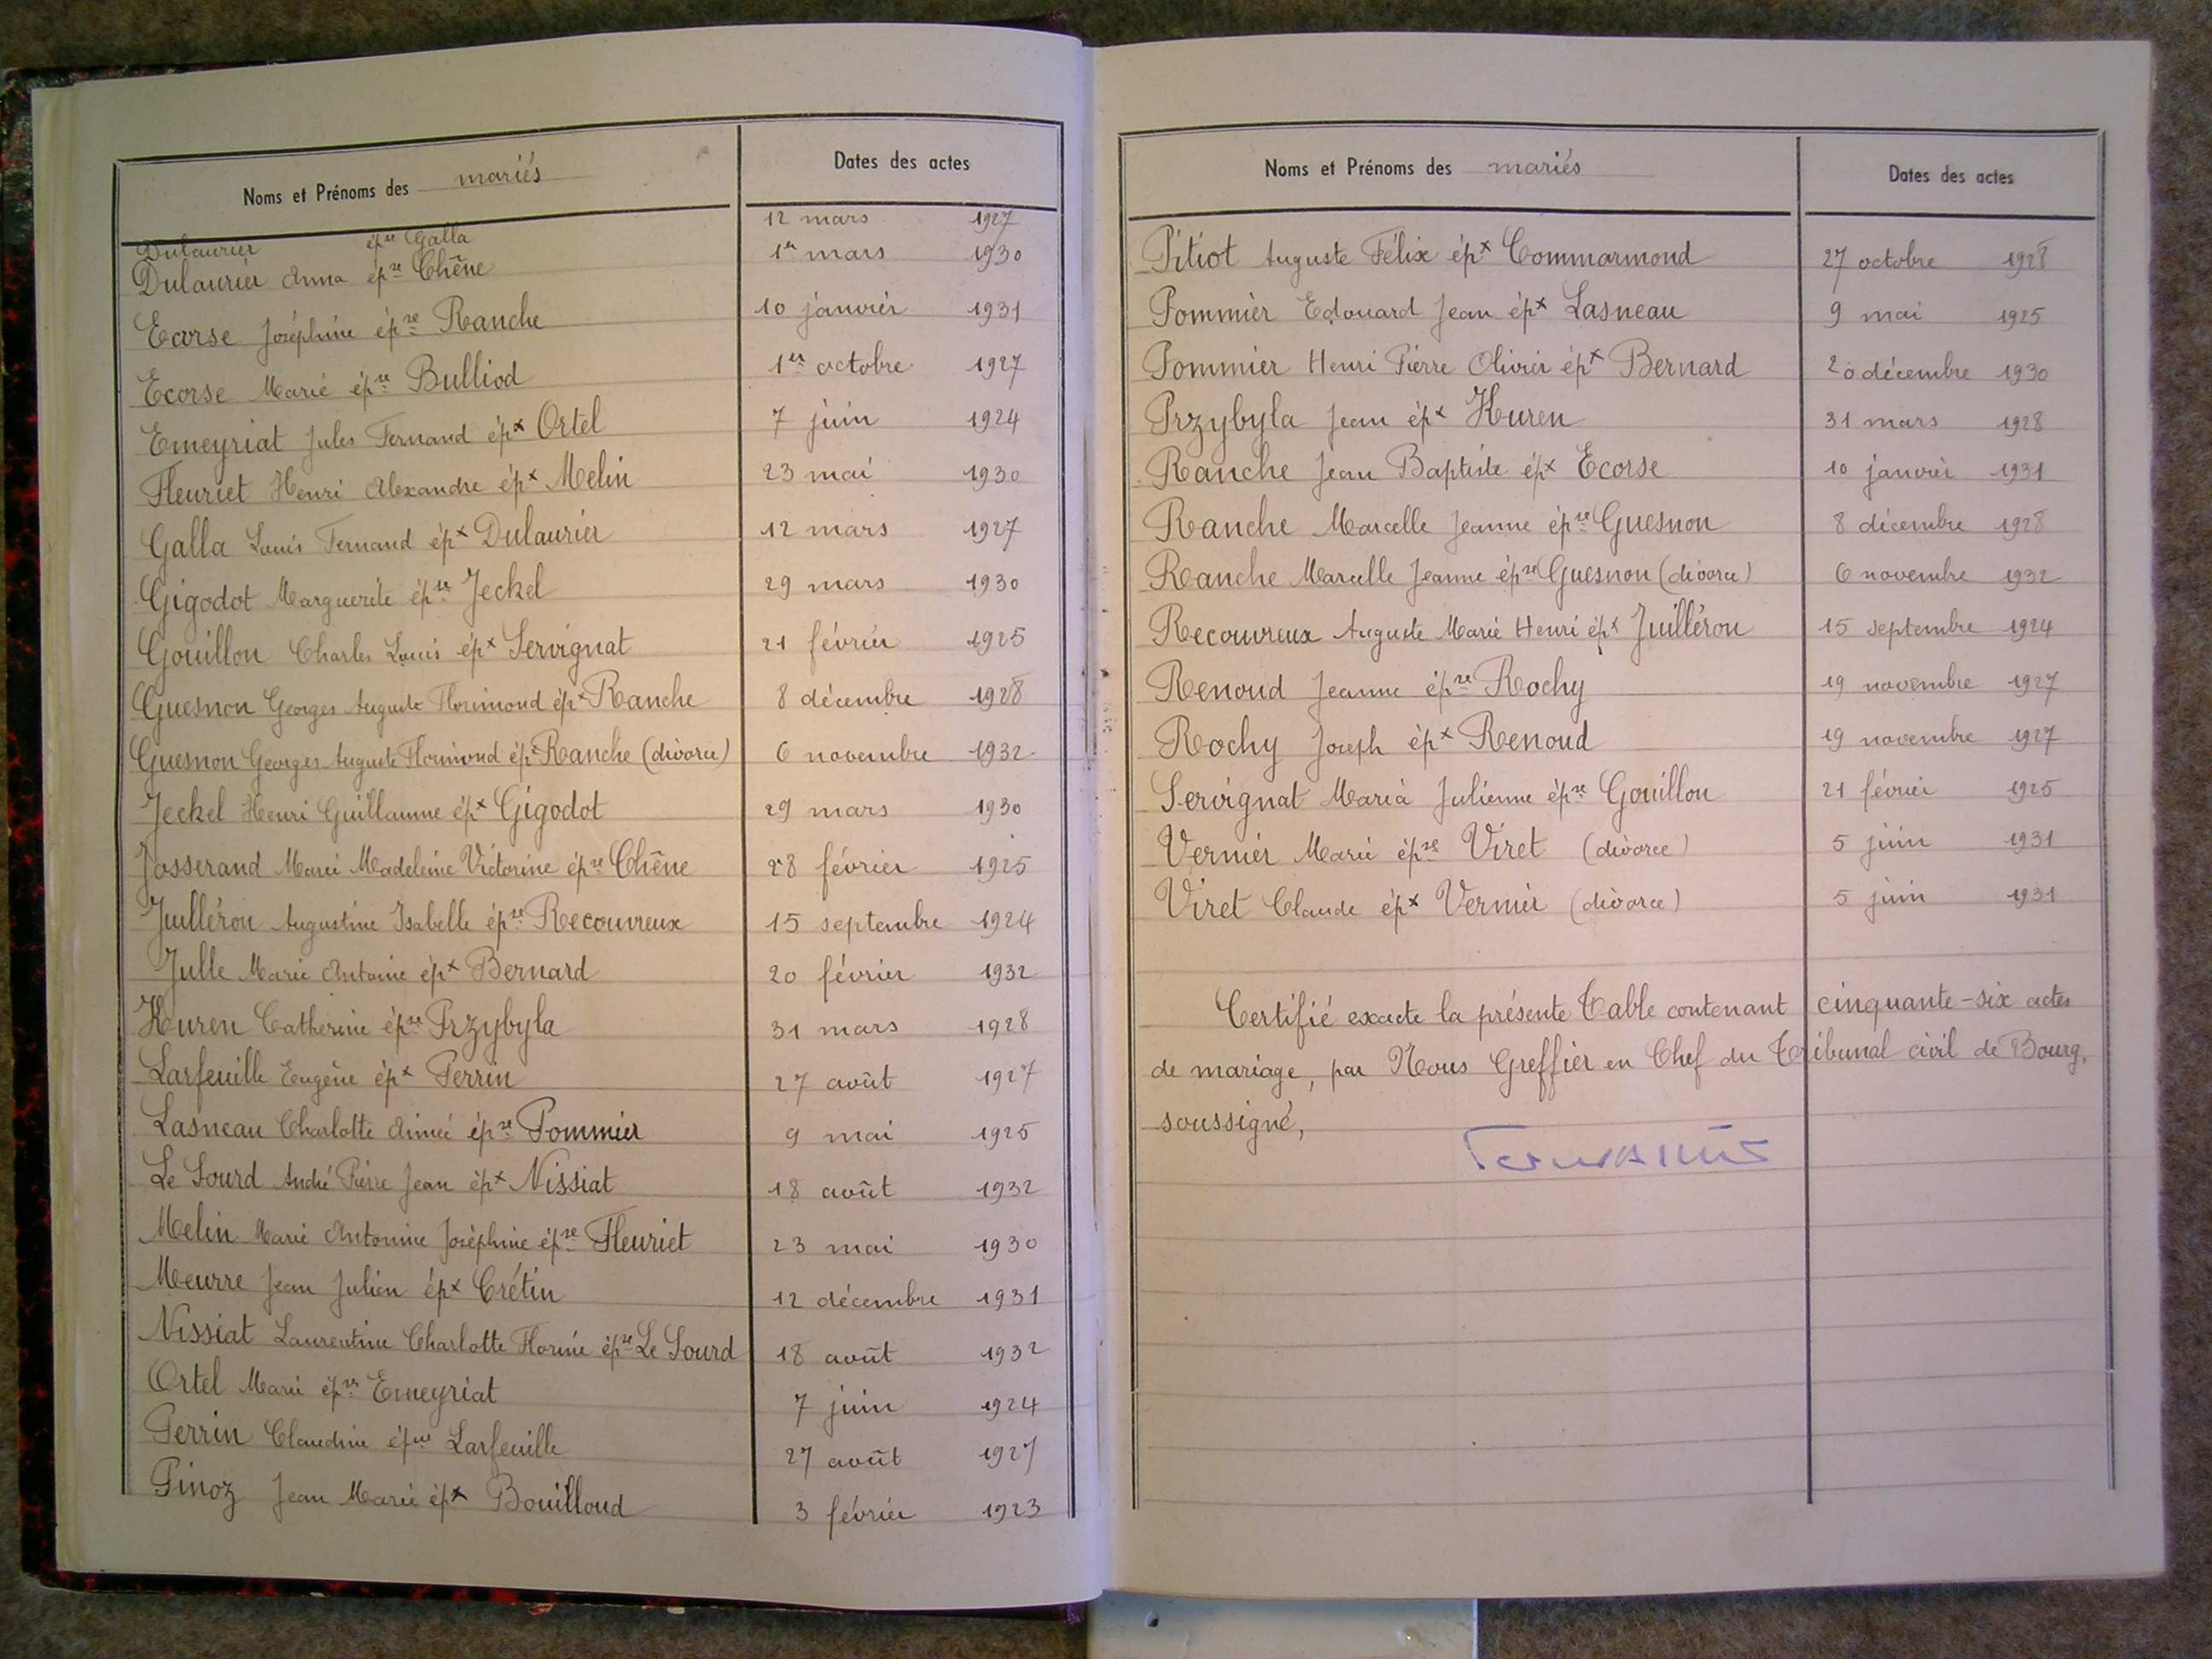 Noms et Prénoms des mariés Dates des actes
Dulaurier épse Galla 12 mars 1927
Dulaurier Anna épse Chêne 1er mars 1930
Ecorse Joséphine épse Ranche 10 janvier 1931
Ecorse Marie épse Bulliod 1er octobre 1927
Emeyriat Jules Fernand épx Ortel 7 juin 1924
Fleuriet Henri Alexandre épx Melin 23 mai 1930
Galla Louis Fernand épx Dulaurier 12 mars 1927
Gigodot Marguerite épse Jeckel 29 mars 1930
Gouillon Charles Louis épx Servignat 21 février 1925
Guesnon Georges Auguste Florimond épx Ranche 8 décembre 1928
Guesnon Georges Auguste Florimond épx Ranche (divorce) 6 novembre 1932
Jeckel Henri Guillaume épx Gigodot 29 mars 1930
Josserand Marie Madeleine Victorine épse Chêne 28 février 1925
Juilléron Augustine Isabelle épse Recouvreux 15 septembre 1924
Julle Marie Antoine épx Bernard 20 février 1932
Kuren Catherine épse Przybyla 31 mars 1928
Larfeuille Eugène épx Perrin 27 août 1927
Lasneau Charlotte Aimée épse Pommier 9 mai 1925
Le Sourd André Pierre Jean épx Nissiat 18 août 1932
Melin Marie Antonine Joséphine épse Fleuriet 23 mai 1930
Meurre Jean Julien épx Crétin 12 décembre 1931
Nissiat Laurentine Charlotte Florine épse Le Sourd 18 août 1932
Ortel Marie épse Emeyriat 7 juin 1924
Perrin Claudine épse Larfeuille 27 août 1927
Pinoz Jean Marie épx Bouilloud 3 février 1923
Noms et Prénoms des mariés Dates des actes
Pitiot Auguste Félix épx Commarmond 27 octobre 1928
Pommier Edouard Jean épx Lasneau 9 mai 1925
Pommier Henri Pierre Olivier épx Bernard 20 décembre 1930
Przybyla Jean épx Kuren 31 mars 1928
Ranche Jean Baptiste épx Ecorse 10 janvier 1931
Ranche Marcelle Jeanne épse Guesnon 8 décembre 1928
Ranche Marcelle Jeanne épse Guesnon (divorce) 6 novembre 1932
Recouvreux Auguste Marie Henri épx Juilléron 15 septembre 1924
Renoud Jeanne épse Rochy 19 novembre 1927
Rochy Joseph épx Renoud 19 novembre 1927
Servignat Maria Julienne épse Gouillon 21 février 1925
Vernier Marie épse Viret (divorce) 5 juin 1931
Viret Claude épx Vernier (divorce) 5 juin 1931
Certifié exacte la présente Table contenant cinquante-six actes
de mariage, par Nous Greffier en Chef du Tribunal civil de Bourg,
soussigné,